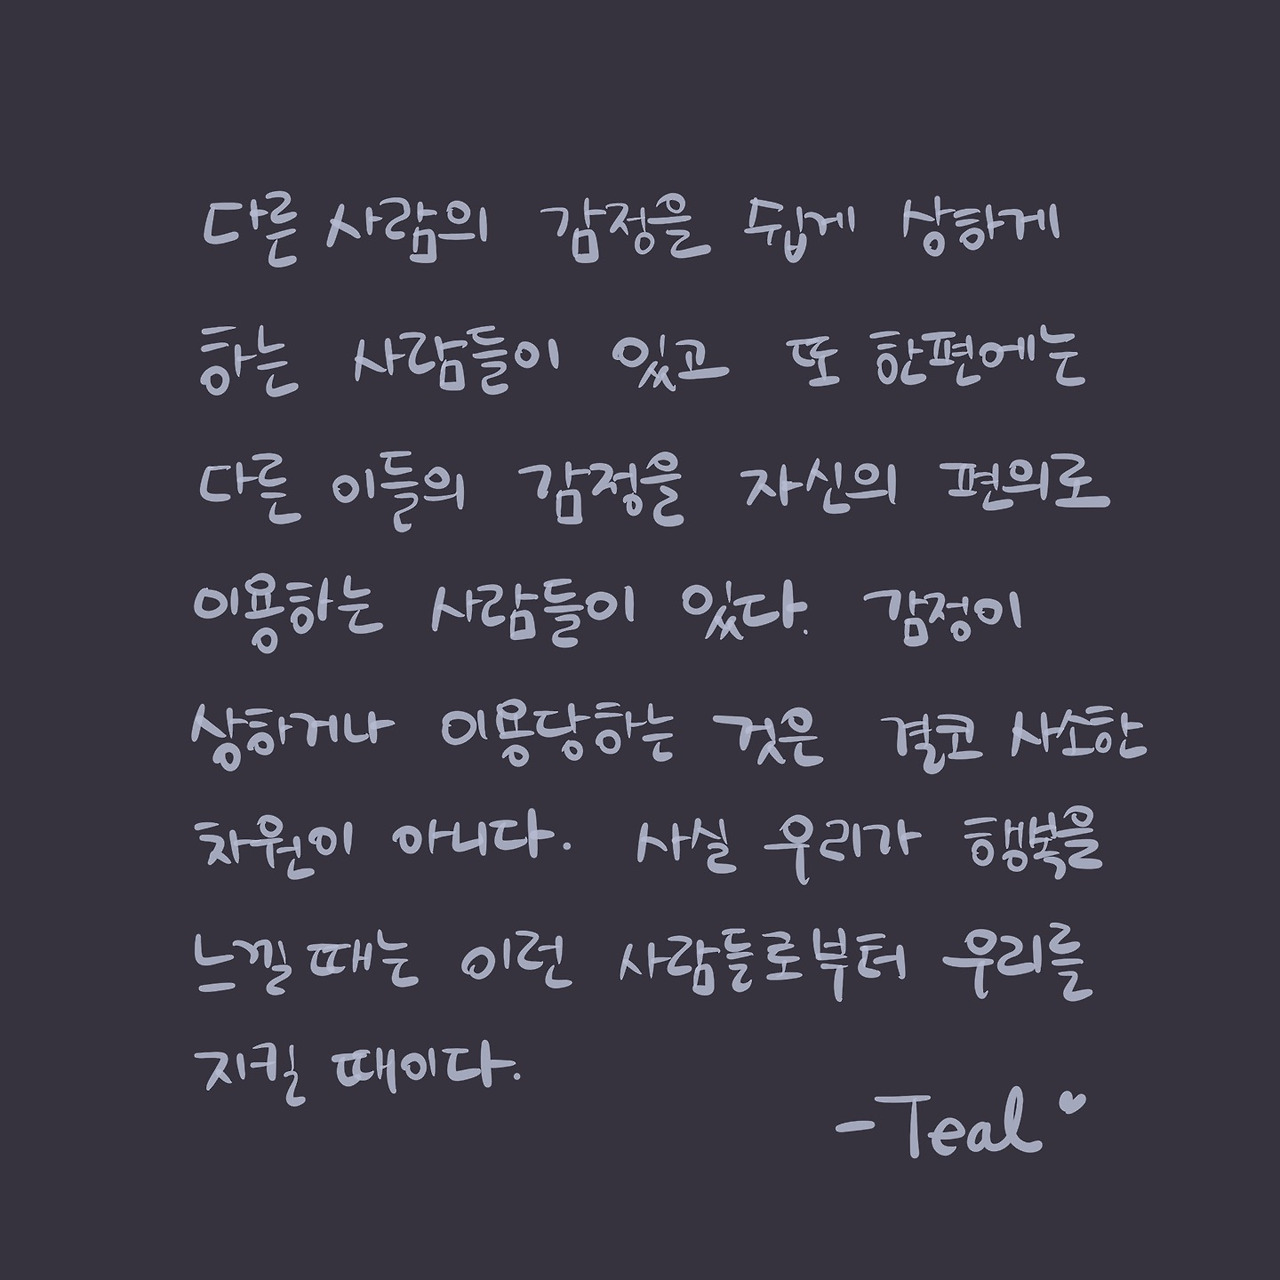 다른 사람의 감정을 쉽게 상하게
하는 사람들이 있고 또 한편에는
다른 이들의 감정을 자신의 편의로
이용하는 사람들이 있다. 감정이
상하거나 이용당하는 것은 결코 사소한
차원이 아니다. 사실 우리가 행복을
느낄 때는 이런 사람들로부터 우리를
지킬 때이다.
-Teal♥